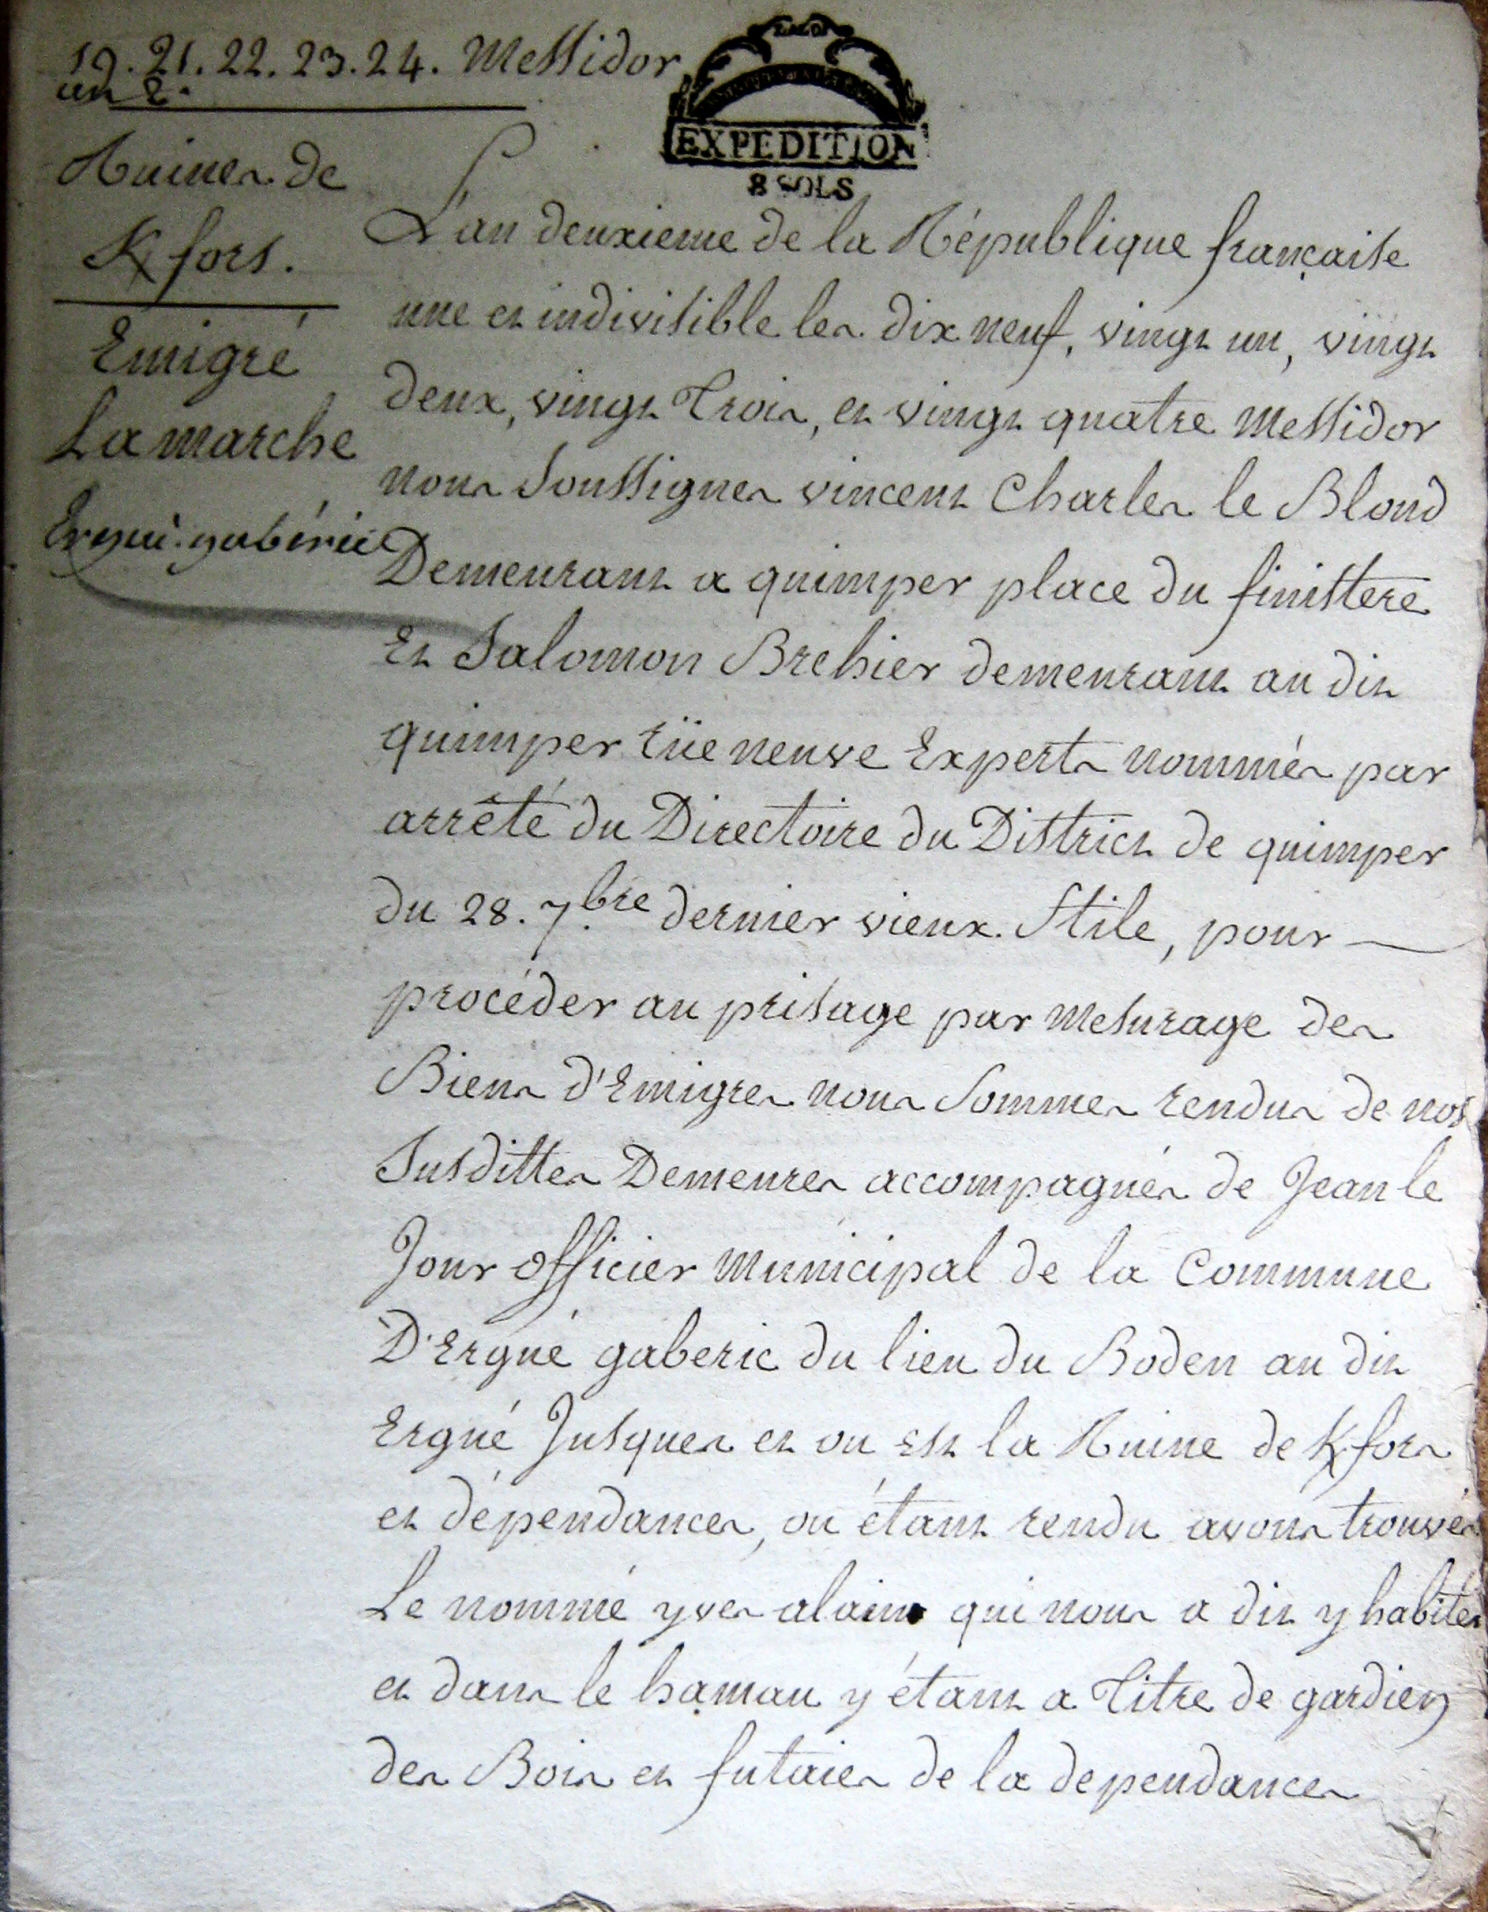 19. 21. 22. 23. 24. Messidor
an 2.
Ruines de
K fors.
Emigré
La marche
Ergué-gabéric
LA LOI
EXPEDITION
8 SOLS
L'an deuxieme de la République française
une et indivisible les dix neuf, vingt un, vingt
deux, vingt Trois, et vingt quatre Messidor
nous Soussignes vincent Charles le Blond
Demeurant a quimper place du finistere
Et Salomon Brehier demeurant au dit
quimper rüe neuve Experts nommés par
arrêté du Directoire du District de quimper
du 28. 7.bre dernier vieux Stile, pour
procéder au prisage par Mesurage des
Biens d'Emigres nous Sommes rendus de nos
Susdittes Demeures accompagnés de Jean le
Jour officier Municipal de la Commune
D'Ergué gaberic du lieu du Boden au dit
Ergué Jusques et ou Est la Ruine de K fors
et dépendances, ou étant rendu avons trouvés
Le nommé yves alain qui nous a dit y habiter
et dans le hamau y étant a Titre de gardien
des Bois et futaies de la dependances